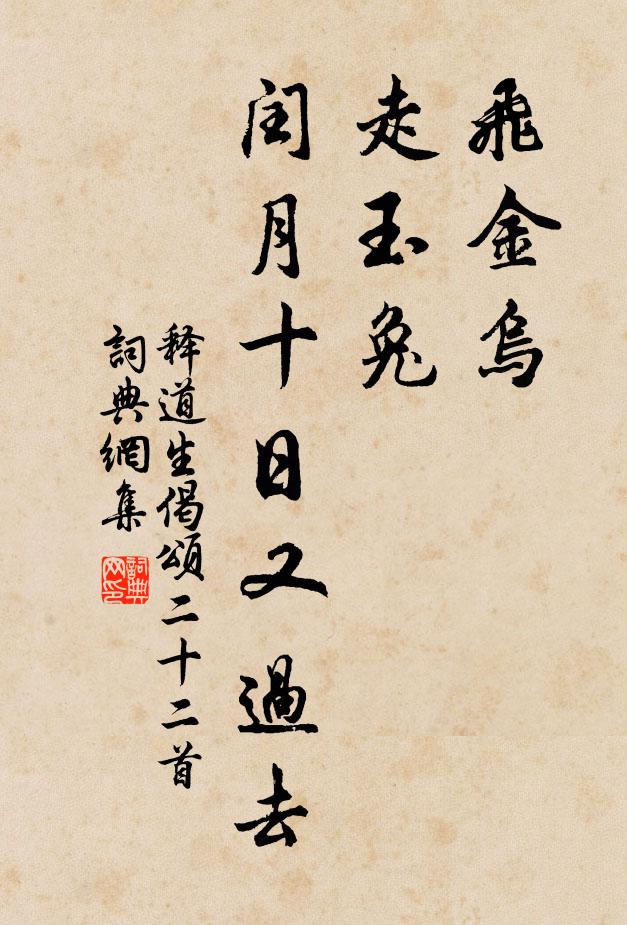 飛金烏
走玉兔
闰月十日又過去
释道生偈頌二十二首
詞典網集
詞典
网印